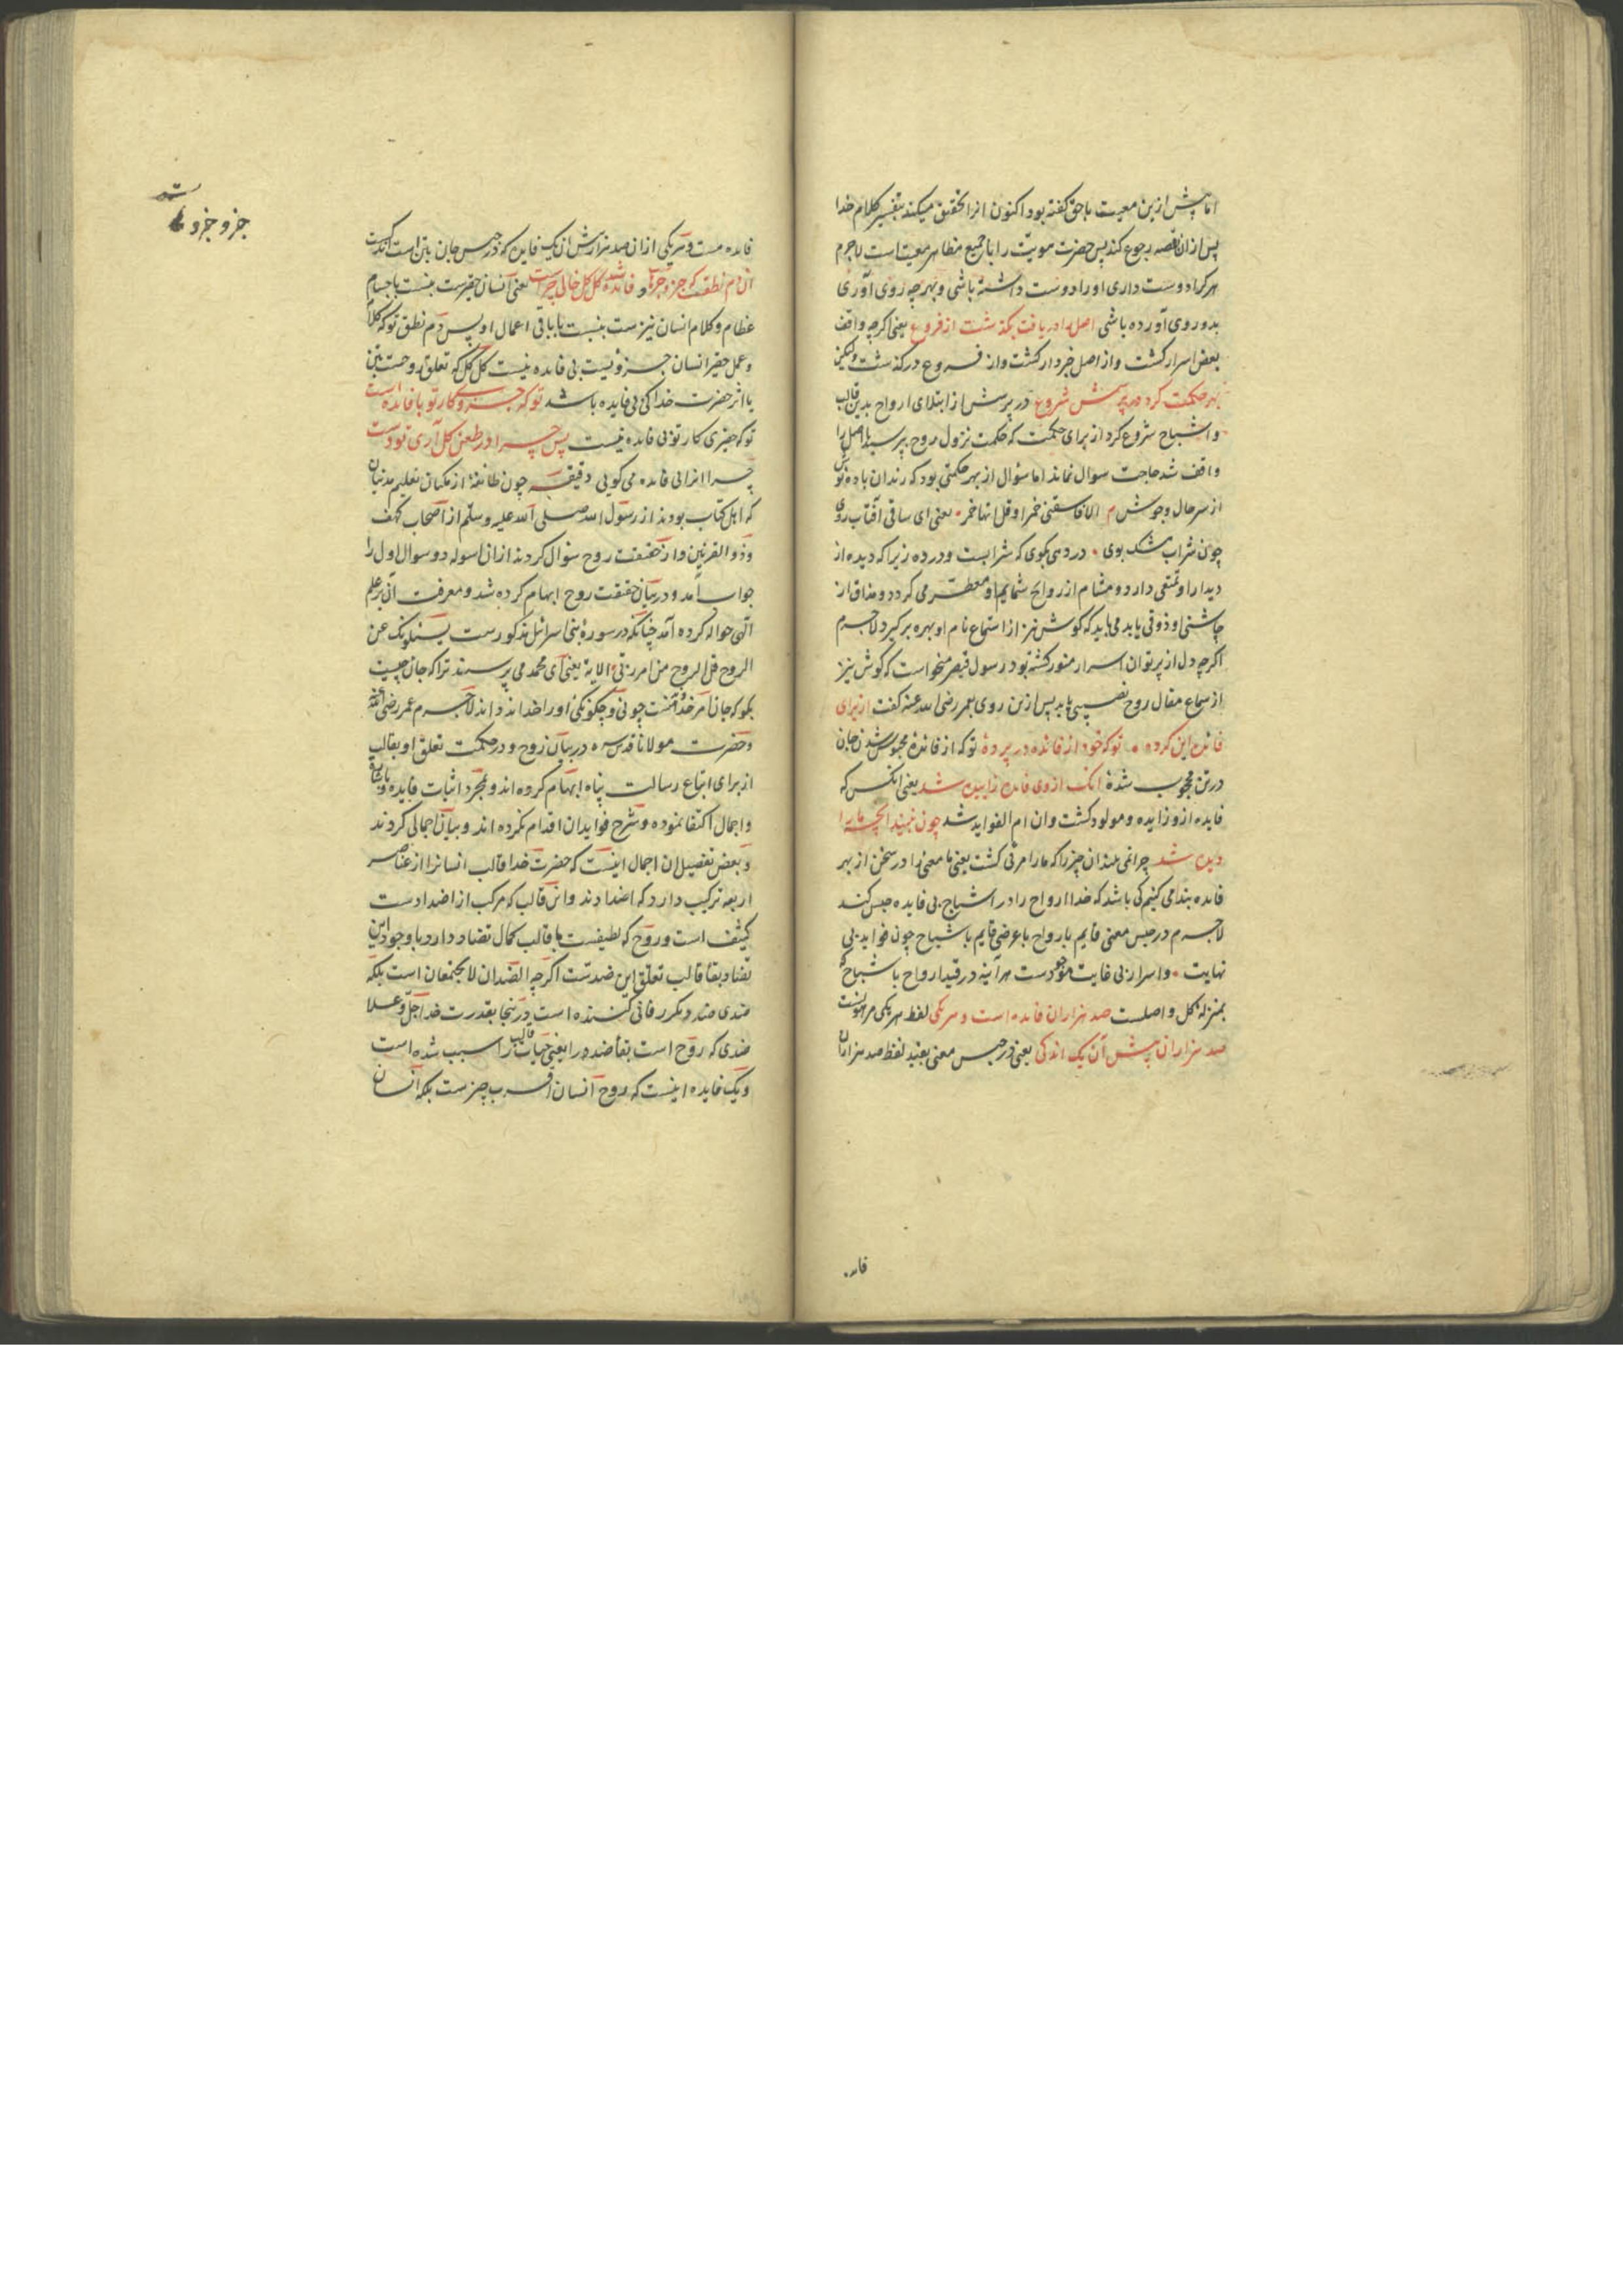 اما پیش ازین معیت باحق کفته بود اکنون انرا تحقیق میکند بتفسیر کلام خدا
پس ازان بقصه رجوع کند پس حضرت هویّت را با جمیع مظاهر معیت است لاجرم
هرکرا دوست داری او را دوست داشتهٔ باشی و بهرچه روی آوری
بدو روی آورده باشی اصل را دریافت بکذشت از فروع یعنی اکرچه واقف
بعض اسرار کشت و از اصل خبردار کشت و از فروع در کذشت ولیکن
بهر حکمت کرد در پرسش شروع در پرسش از ابتلای ارواح بدین قالب
و اشباح شروع کرد از برای حکمت که حکمت نزول روح بپرسید با اصل را
واقف شد حاجت سوال نماند اما سؤال از بهر حکمتی بود که رندان باده نوش
از سر حال و جوش م الا فاسقنی خمرا و قل انها خمر یعنی ای ساقی آفتاب روی
چون شراب مشک بوی در دهی بکوی که شرابست و در ده زیرا که دیده از
دیدار او تمتعی دارد و مشام از روایح شمایم او معطّر می کردد و مذاق از
چاشنی او ذوقی یابد می باید که کوش نیز از استماع نام او بهره بر کیرد لاجرم
اکرچه دل از پرتو ان اسرار منور کشته بود رسول قیصر میخواست که کوش نیز
از سماع مقال روح نصیبی یابد پس ازین روی بعمر رضی الله عنه کفت از برای
فائده این کردهٔ توکه خود از فائده در پردهٔ توکه از فائدهٔ محبوس شدن جان
در تن محجوب شدهٔ انک از وی فائده زاییده شد یعنی انکس که
فایده ازو زایده و مولود کشت و ان ام الفواید شد چون نبیند انچه ما را
دیده شد چرا نمی بیند ان چیز را که ما را مرئی کشت یعنی ما معنی را در سخن از بهر
فائده بند می کنیم کی باشد که خدا ارواح را در اشباح بی فایده حبس کند
لاجرم در حبس معنی قایم بارواح با عرضی قایم باشباح چون فواید بی
نهایت و اسرار بی غایت موجودست هر آینه در قید ارواح باشباح که
بمنزلهٔ کل و اصلست صد هزاران فائده است و هر یکی لفظ هر یکی مرهونست
صد هزاران پیش آن یک اندکی یعنی در حبس معنی بقید لفظ صد هزاران
فایده
فائده هست و هر یکی ازان صد هزار پیش ان یک فایده که در حبس جان بتن است اندکست
آن دم نطقت که جزو جزوهاست فائده شد کل کل خالی چراست یعنی انسان جزوست بنسبت باجسام
عظام و کلام انسان نیز هست بنسبت با باقی اعمال او پس دم نطق توکه کلام
و عمل حقیر انسان جزویست بی فایده نیست کل کل که تعلق روحست بتن
با اثر حضرت خدا کی بی فایده باشد توکه جزوی کار تو با فائده است
توکه جزی کار تو بی فائده نیست پس چرا در طعن کل آری تو دست
چرا انرا بی فائده می کویی دقیقه چون طائفهٔ از مکیان بتعلیم مدنیان
که اهل کتاب بودند از رسول الله صلی الله علیه وسلم از اصحاب کهف
و ذو القرنین و از حقیقت روح سؤال کردند ازان اسوله دو سوال اول را
جواب آمد و در بیان حقیقت روح ابهام کرده شد و معرفت آن بر علم
الهی حواله کرده آمد چنانکه در سورهٔ بنی اسرائل مذکورست یسئلونک عن
الروح قل الروح من امر ربّی الایة یعنی ای محمد می پرسند ترا که جان چیست
بکو که جان امر خدا منست چونی و چکونکی او را خدا داند لاجرم عمر رضی الله عنه
و حضرت مولانا قدس سره در بیان روح و در حکمت تعلق او بقالب
از برای اتباع رسالت پناه ابهام کرده اند و بمجرد اثبات فایده باشارة
و اجمال اکتفا نموده و بشرح فواید ان اقدام نکرده اند و بیان اجمالی کردند
و بعض تفصیل ان اجمال اینست که حضرت خدا قالب انسانرا از عناصر
اربعه ترکیب دارد که اضدادند و این قالب که مرکب از اضدادست
کثیف است و روح که لطیفست با قالب کمال تضاد دارد با وجود این
تضاد بقاء قالب تعلق این ضدست اکرچه الضدان لا یجتمعان است بلکه
ضدی ضد دیکر را فانی کننده است در اینجا بقدرت خدا جلّ و علا
ضدی که روح است بقاء ضد را یعنی حیات قالب را سبب شده است
و یک فایده اینست که روح انسان اقرب چیزست بلکه انسان
جزو جزو